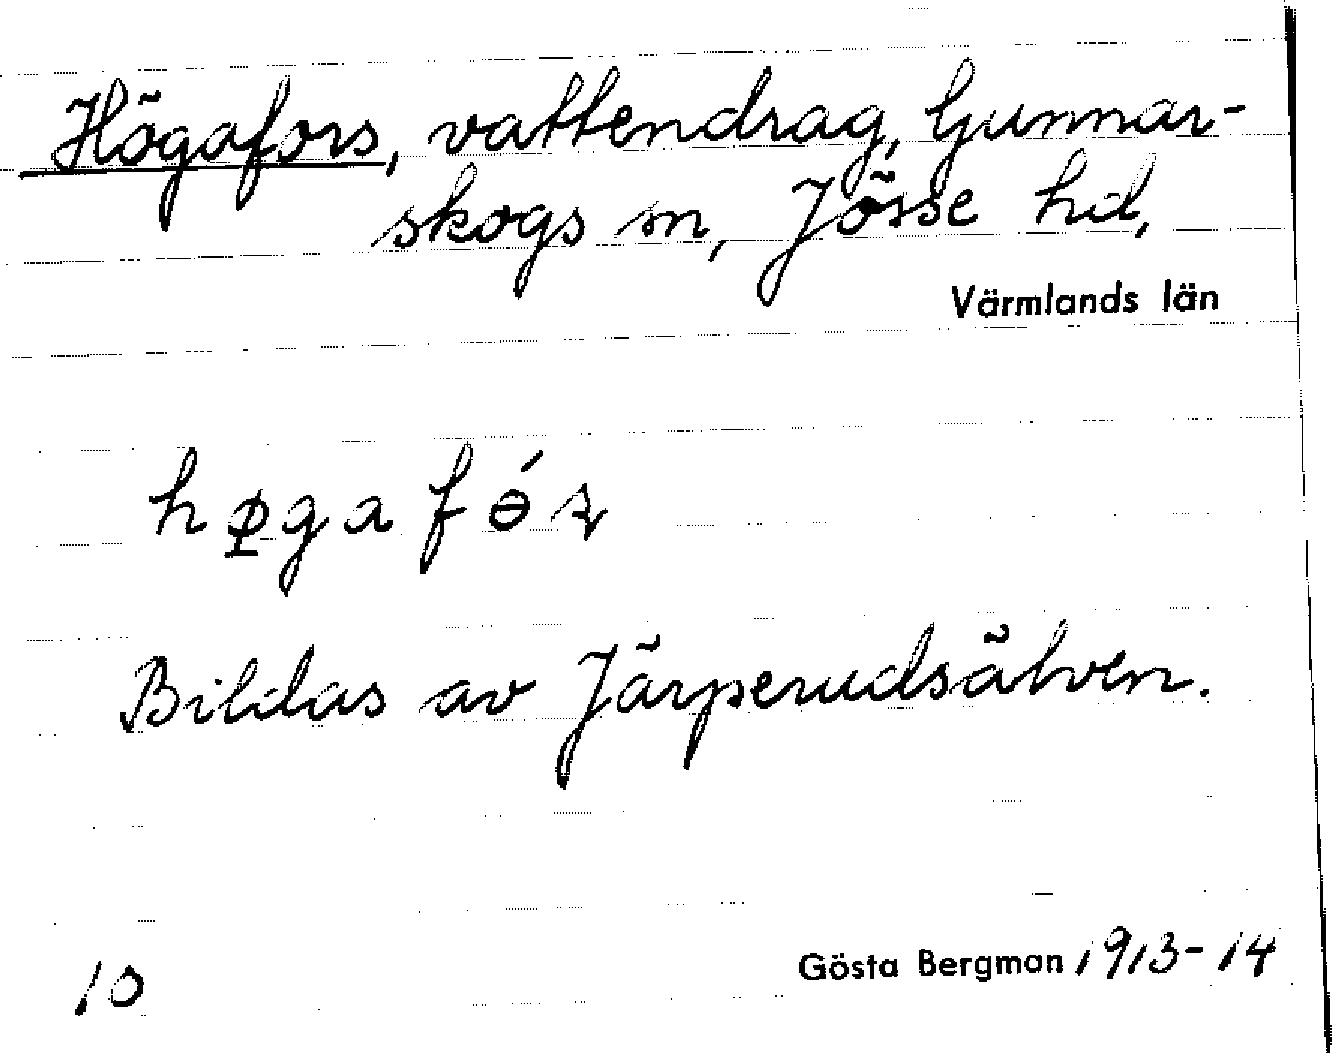 Högafors, vattendrag, Gunnar-
skogs sn, Jösse hd,
Värmlands län
hø̱gafɵ́ʂ
Bildas av Järperudsälven.
10
Gösta Bergman 1913-14